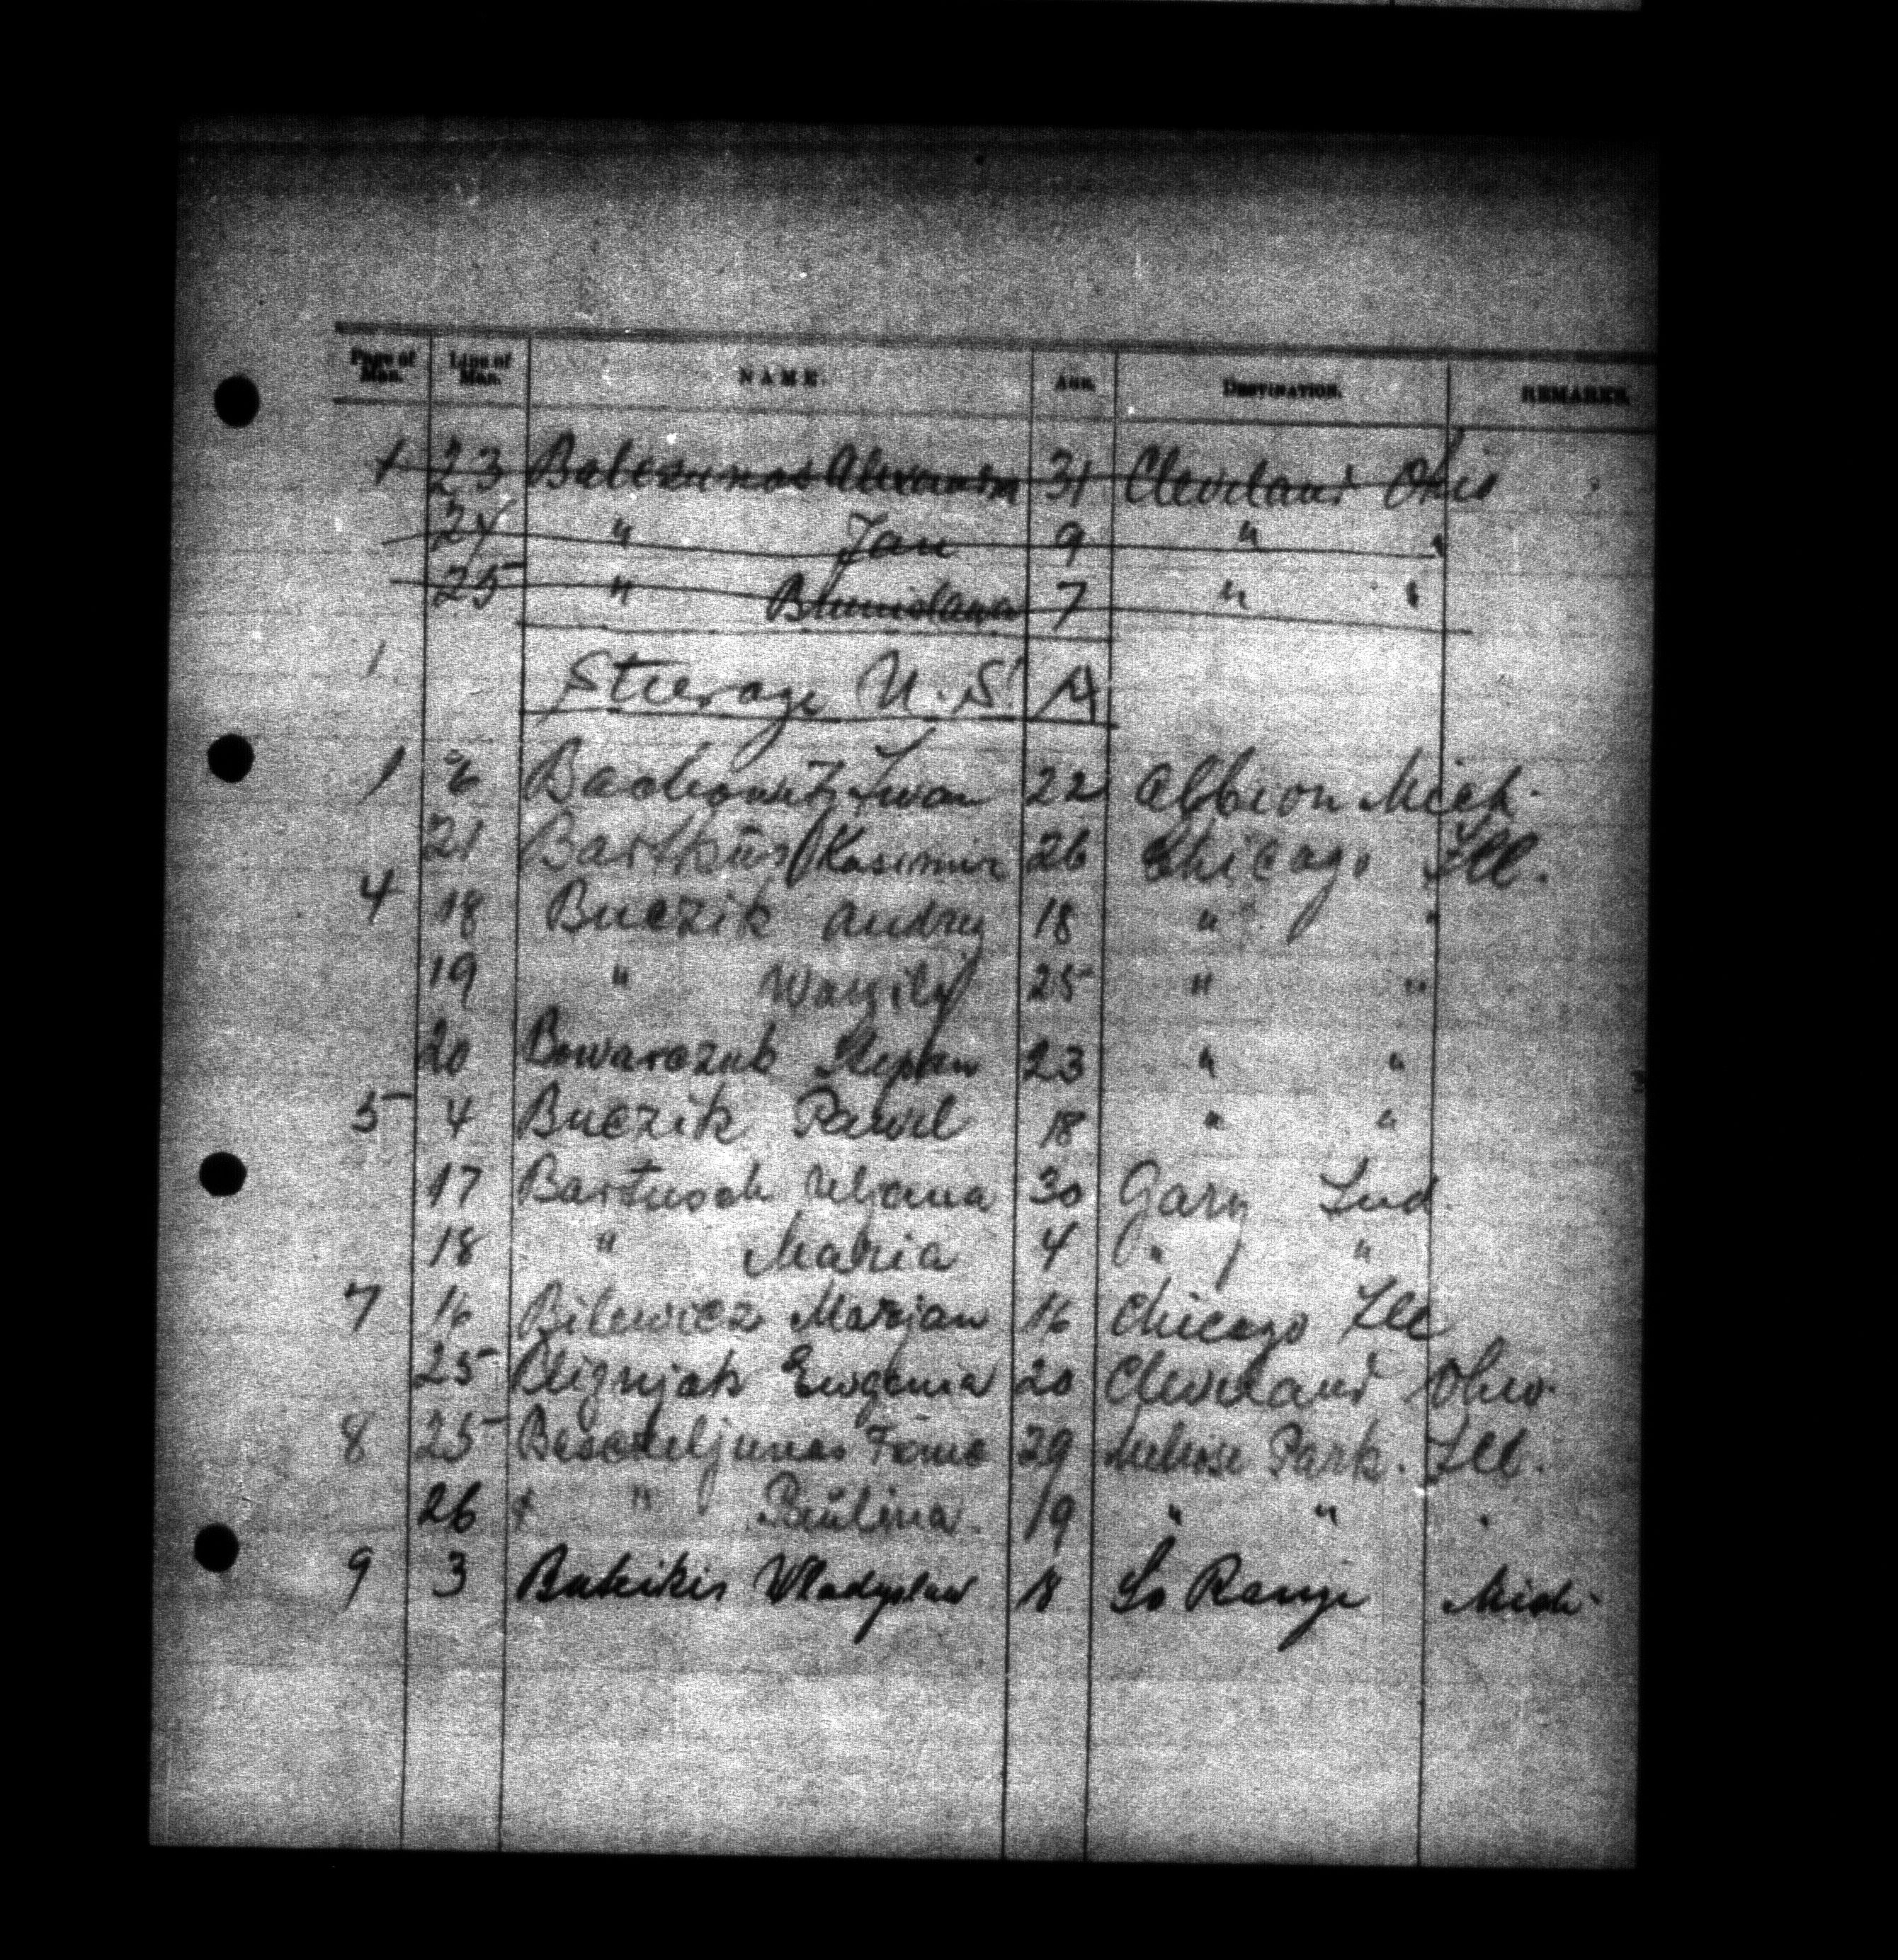 Page of Man. Line of Man. NAME. AGE. DESTINATION. REMARKS.
1 23 31 Cleveland Ohio
24 " Jan 9 " "
25 " 7 " "
1
Steerage U.S.A
1 Iwan 22 Albion Mich.
21 Bartkus Kasimir 26 Chicago Ill.
4 18 Buczik Andrey 18 " "
19 " 25 " "
20 Bowarczuk Stepan 23 " "
5 4 Buczik Pawel 18 " "
17 Bartusch Uljana 30 Gary Ind.
18 " Maria 4 " "
7 16 Bilewicz Marjan 16 Chicago Ill
25 Bliznjak Ewgenia 20 Cleveland Ohio.
8 25 29 Melrose Park. Ill.
26 " 19 " " "
9 3 Wladyslaw 18 Mich.